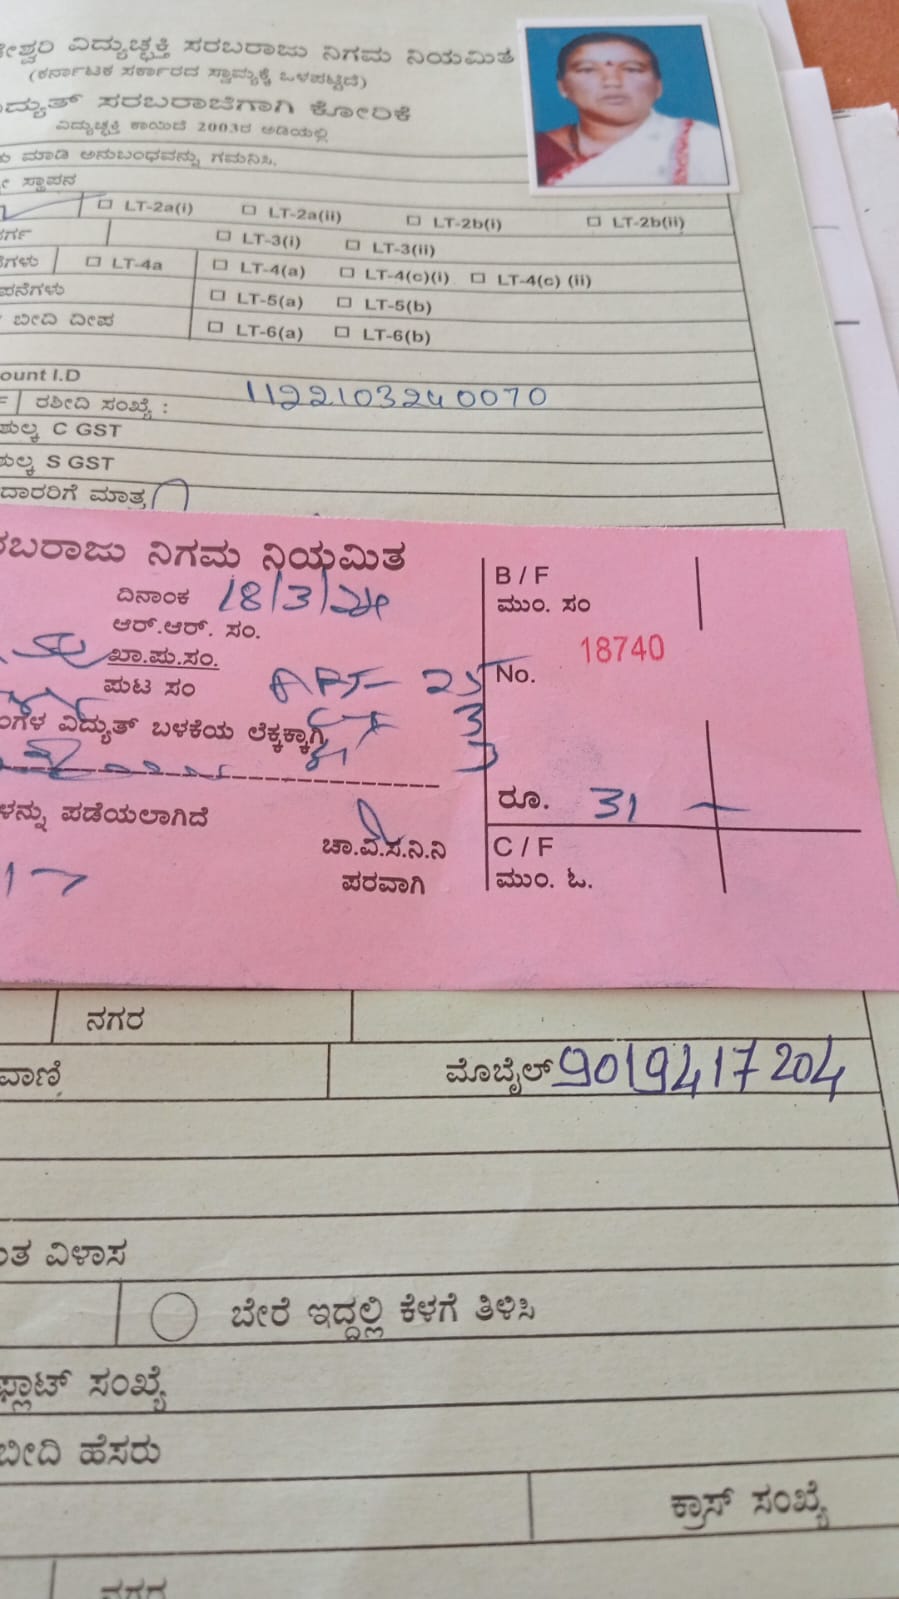 ಶ್ವರಿ ವಿದ್ಯುಚ್ಛಕ್ತಿ ಸರಬರಾಜು ನಿಗಮ ನಿಯಮಿತ
(ಕರ್ನಾಟಕ ಸರ್ಕಾರದ ಸ್ವಾಮ್ಯಕ್ಕೆ ಒಳಪಟ್ಟಿದೆ)
ದ್ಯುತ್ ಸರಬರಾಜಿಗಾಗಿ ಕೋರಿಕೆ
ವಿದ್ಯುಚ್ಛಕ್ತಿ ಕಾಯಿದೆ 2003ರ ಅಡಿಯಲ್ಲಿ
ಮಾಡಿ ಅನುಬಂಧವನ್ನು ಗಮನಿಸಿ.
ಸ್ಥಾಪನ
☐ LT-2a(i) ☐ LT-2a(ii) ☐ LT-2b(i) ☐ LT-2b(ii)
ರ್ಗ ☐ LT-3(i) ☐ LT-3(ii)
ಗಳು ☐ LT-4a ☐ LT-4(a) ☐ LT-4(c)(i) ☐ LT-4(c) (ii)
ಪನೆಗಳು ☐ LT-5(a) ☐ LT-5(b)
ಬೀದಿ ದೀಪ ☐ LT-6(a) ☐ LT-6(b)
ount I.D
ರಶೀದಿ ಸಂಖ್ಯೆ : 1122103240070
ಶುಲ್ಕ C GST
ಶುಲ್ಕ S GST
ದಾರರಿಗೆ ಮಾತ್ರ
ರಬರಾಜು ನಿಗಮ ನಿಯಮಿತ
ದಿನಾಂಕ 18/3/24
ಆರ್.ಆರ್. ಸಂ.
ಖಾ.ಪು.ಸಂ.
ಪುಟ ಸಂ
ಂಗಳ ವಿದ್ಯುತ್ ಬಳಕೆಯ ಲೆಕ್ಕಕ್ಕಾಗಿ
ಳನ್ನು ಪಡೆಯಲಾಗಿದೆ
ಚಾ.ವಿ.ಸ.ನಿ.ನಿ
ಪರವಾಗಿ
B / F
ಮುಂ. ಸಂ
No. 18740
ರೂ. 31
C / F
ಮುಂ. ಓ.
ನಗರ
ವಾಣಿ ಮೊಬೈಲ್ 9019417204
ತ ವಿಳಾಸ
ಬೇರೆ ಇದ್ದಲ್ಲಿ ಕೆಳಗೆ ತಿಳಿಸಿ
ಫ್ಲಾಟ್ ಸಂಖ್ಯೆ
ಬೀದಿ ಹೆಸರು
ಕ್ರಾಸ್ ಸಂಖ್ಯೆ
ನಗರ